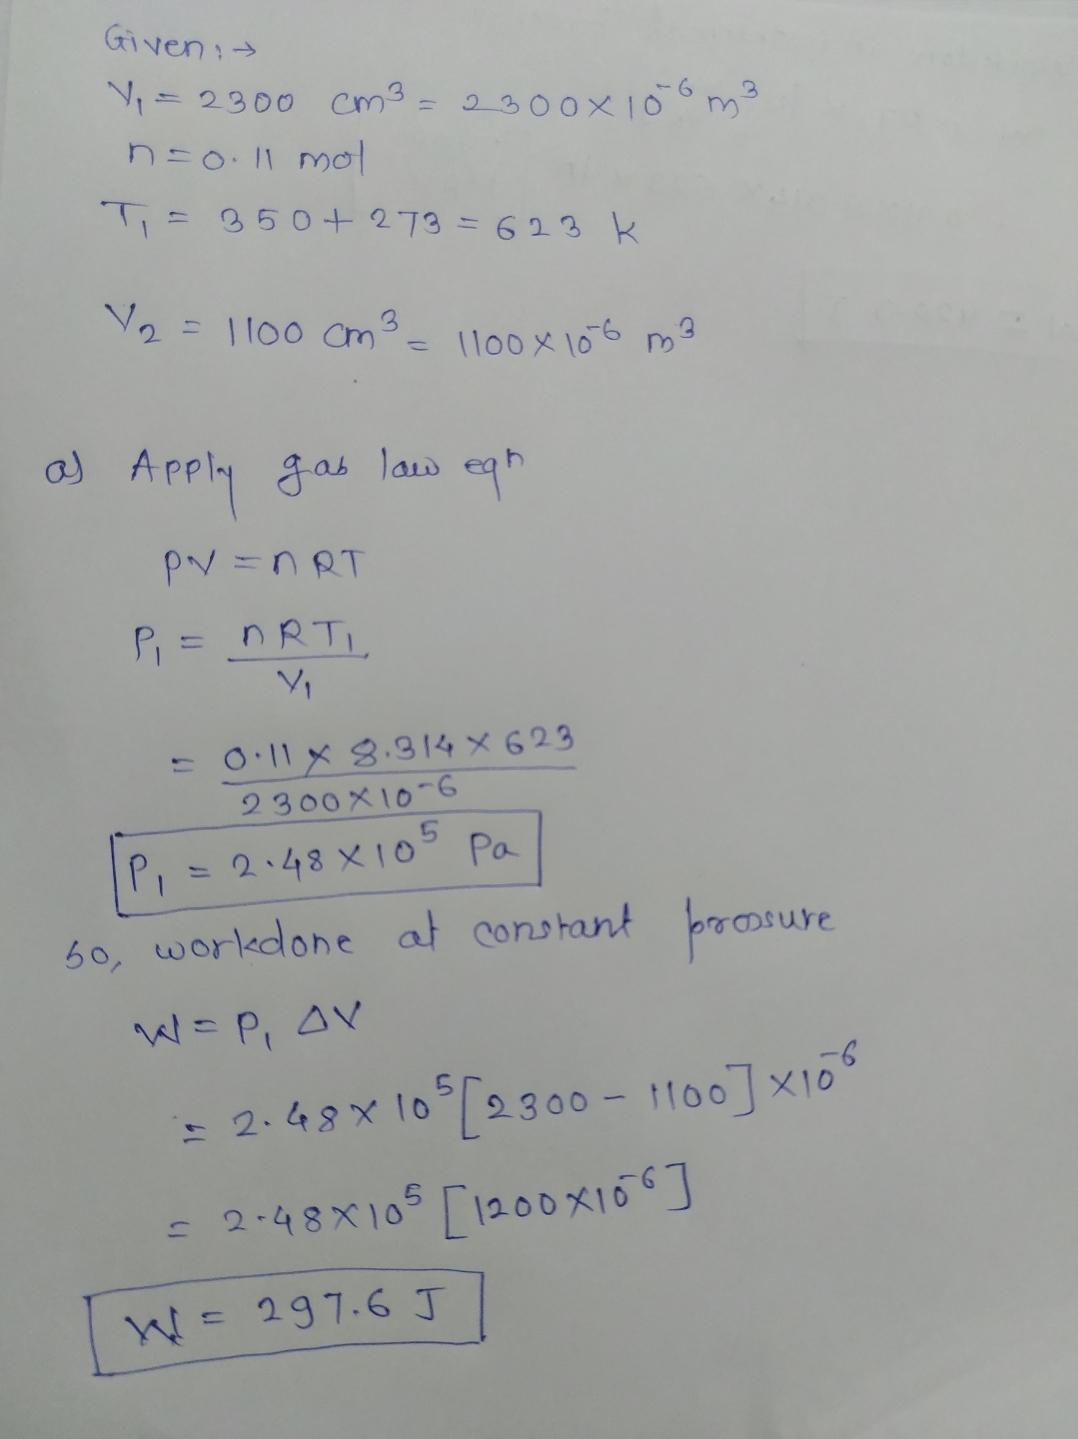 Given :→
V₁ = 2300 cm³ = 2300×10⁻⁶ m³
n = 0.11 mol
T₁ = 350 + 273 = 623 k
V₂ = 1100 cm³ = 1100×10⁻⁶ m³
a) Apply gas law eqn
PV = nRT
P₁ = nRT₁
V₁
= 0.11 × 8.314 × 623
2300×10⁻⁶
P₁ = 2.48×10⁵ Pa
so, workdone at constant pressure
W = P₁ ΔV
= 2.48×10⁵ [2300 - 1100] ×10⁻⁶
= 2.48×10⁵ [1200×10⁻⁶]
W = 297.6 J